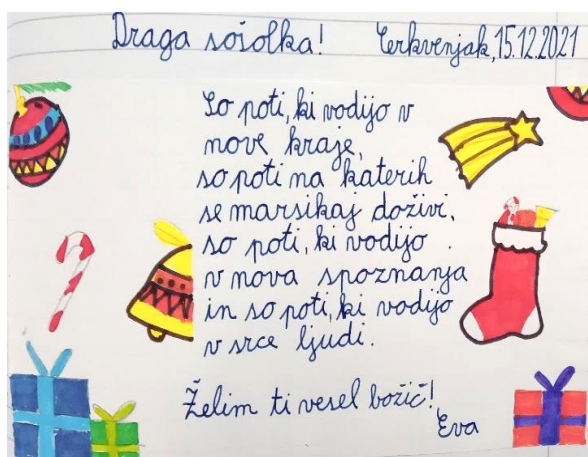 Draga sošolka! Cerkvenjak, 15.12.2021
So poti, ki vodijo v
nove kraje,
so poti na katerih
se marsikaj doživi,
so poti, ki vodijo
v nova spoznanja
in so poti, ki vodijo
v srce ljudi.
Želim ti vesel božič!
Eva